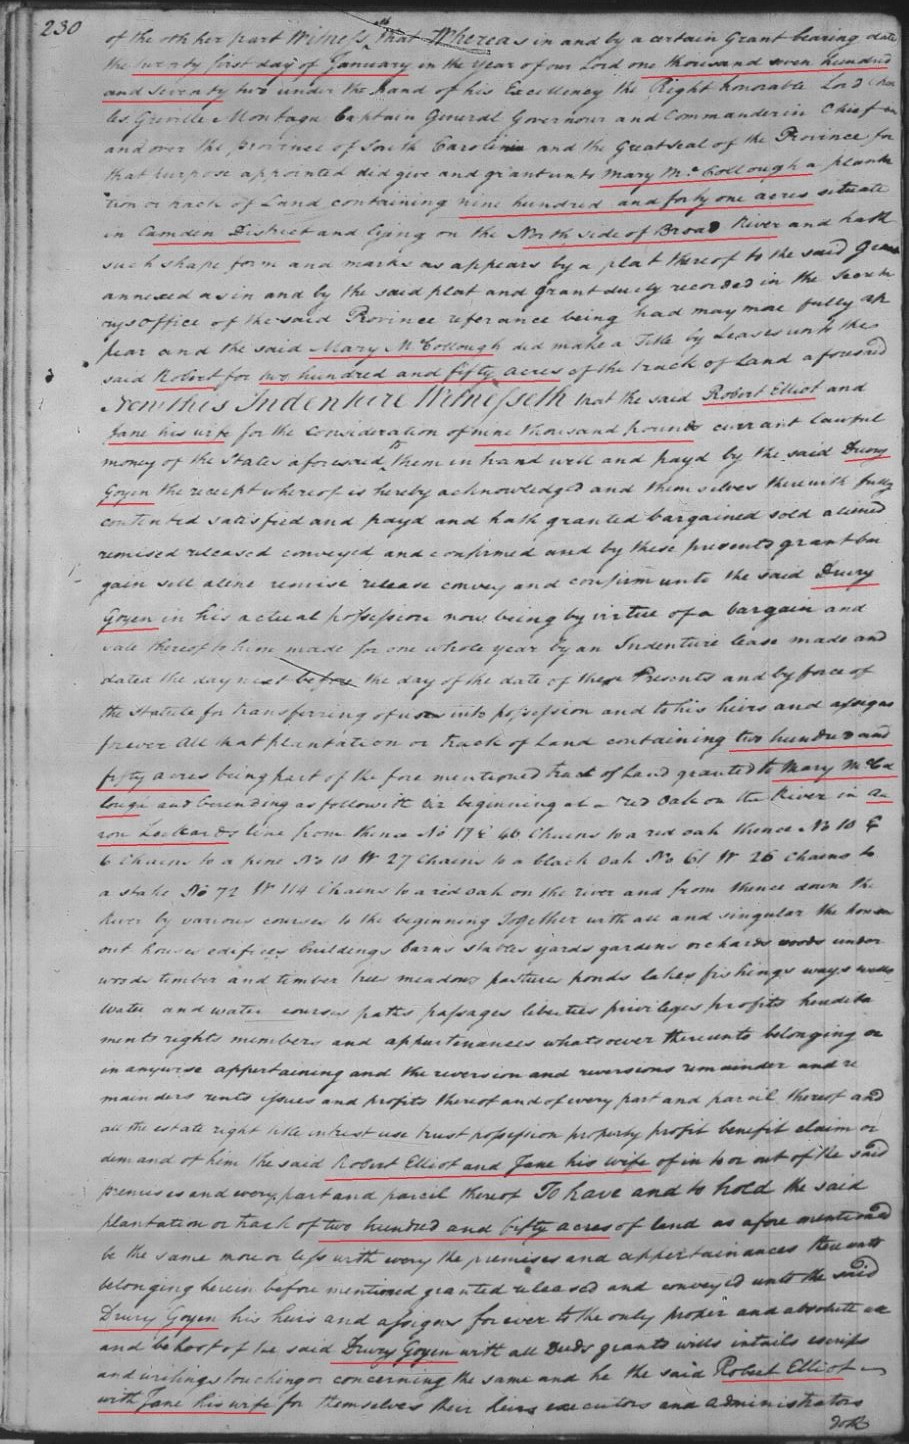 230
of the other part Witness that Whereas in and by a certain Grant bearing date
the twenty first day of January in the year of our Lord one thousand seven hundred
and seventy two under the hand of his Excellency the Right honorable Lord Char
les Greville Montagu Captain General Governour and Commander in Chief in
and over the province of South Carolina and the Great seal of the Province for
that purpose appointed did give and grant unto Mary McCollough a planta
tion or track of Land containing nine hundred and forty one acres situate
in Camden District and lying on the North side of Broad River and hath
such shape form and marks as appears by a plat thereof to the said Grant
annexed as in and by the said plat and grant duely recorded in the Secreta
rys office of the said Province referance being had may more fully ap
pear and the said Mary McCollough did make a Title by Leases unto the
said Robert for two hundred and fifty acres of the track of Land aforesaid
Now this Indenture Witnesseth that the said Robert Elliot and
Jane his wife for the consideration of nine thousand pounds currant lawful
money of the State aforesaid to them in hand well and payd by the said Drury
Goyen the receipt whereof is hereby acknowledged and themselves therewith fully
contented satisfied and payd and hath granted bargained sold aliened
remised released conveyed and confirmed and by these presents grant bar
gain sell aline remise release convey and confirm unto the said Drury
Goyen in his actual possession now being by virtue of a bargain and
sale thereof to him made for one whole year by an Indenture lease made and
dated the day next before the day of the date of these Presents and by force of
the statute for transferring of uses into possession and to his heirs and assigns
forever All that plantation or track of Land containing two hundred and
fifty acres being part of the fore mentioned tract of Land granted to Mary McCo
lough and bounding as followeth viz beginning at a red Oak on the River in Aa
ron Lockards line from thence No 17 E 46 Chains to a red oak thence No 10 E
6 Chains to a pine No 10 W 27 Chains to a black oak No 61 W 26 Chains to
a stake No 72 W 114 Chains to a red oak on the river and from thence down the
River by various courses to the beginning Together with all and singular the houses
out houses edefices buildings barns stables yards gardens orchards woods under
woods timber and timber trees meadows pastures ponds lakes fishings ways wells
water and water courses paths passages liberties privileges profits heridita
ments rights members and appurtinances whatsoever thereunto belonging or
in anywise appertaining and the reversion and reversions remainder and re
mainders rents issues and profits thereof and of every part and parcil thereof and
all the estate right title intrest use trust possession property profit benefit claim or
demand of him the said Robert Elliot and Jane his wife of in to or out of the said
premises and every part and parcil thereof To have and to hold the said
plantation or track of two hundred and fifty acres of land as afore mentioned
be the same more or less with every the premises and appertainances thereunto
belonging herein before mentioned granted released and conveyed unto the said
Drury Goyen his heirs and assigns forever to the only proper and absolute use
and behoof of the said Drury Goyen with all Deeds grants wills intails escrips
and writings touching or concerning the same and he the said Robert Elliot
with Jane his wife for themselves their heirs executors and administrators
doth